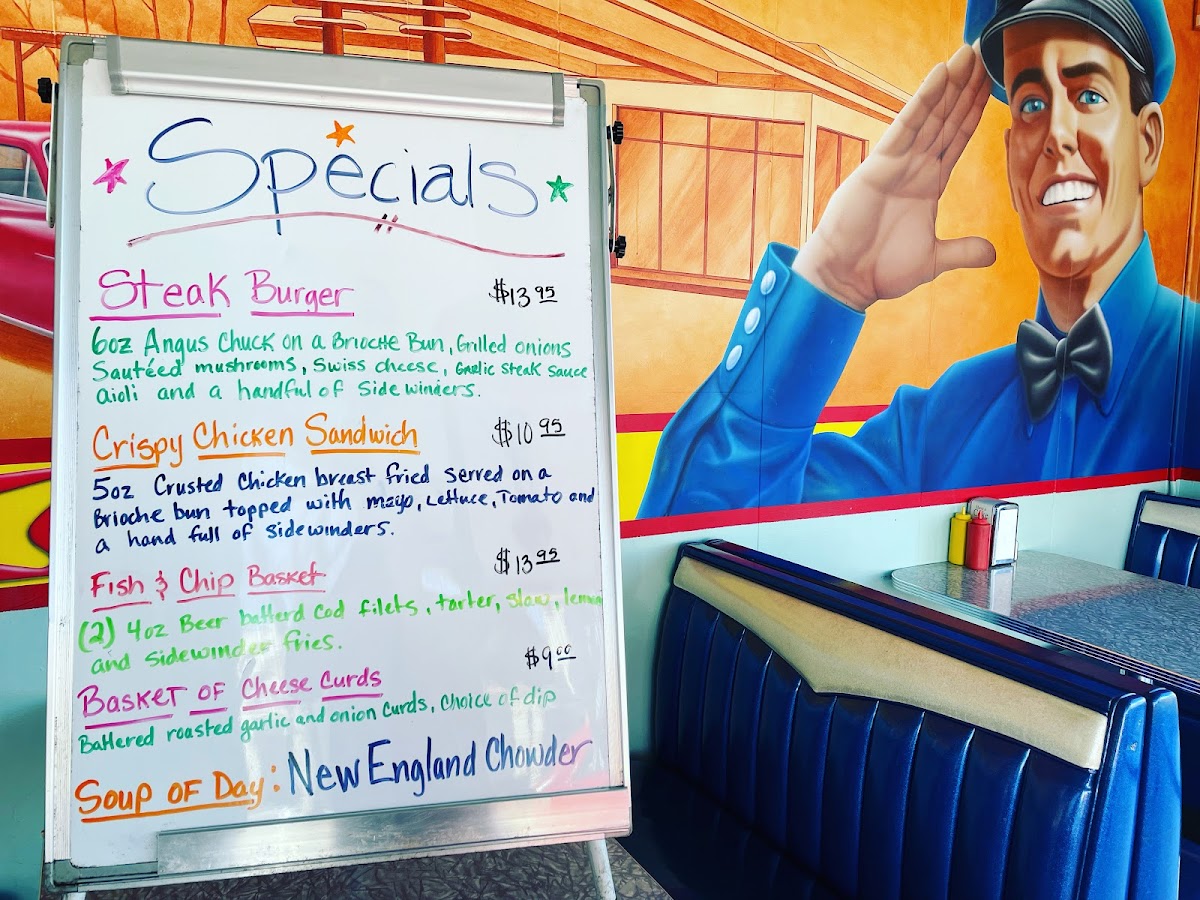 Specials
Steak Burger $13.95
6oz Angus Chuck on a Brioche Bun, Grilled onions
Sautéed mushrooms, Swiss cheese, Garlic steak sauce
aioli and a handful of side winders.
Crispy Chicken Sandwich $10.95
5oz Crusted Chicken breast fried served on a
Brioche bun topped with mayo, Lettuce, Tomato and
a hand full of sidewinders.
Fish & Chip Basket $13.95
(2) 4oz Beer batterd Cod filets, tarter, slaw, lemon
and sidewinder fries.
Basket of Cheese Curds $9.00
Battered roasted garlic and onion curds, choice of dip
Soup of Day: New England Chowder